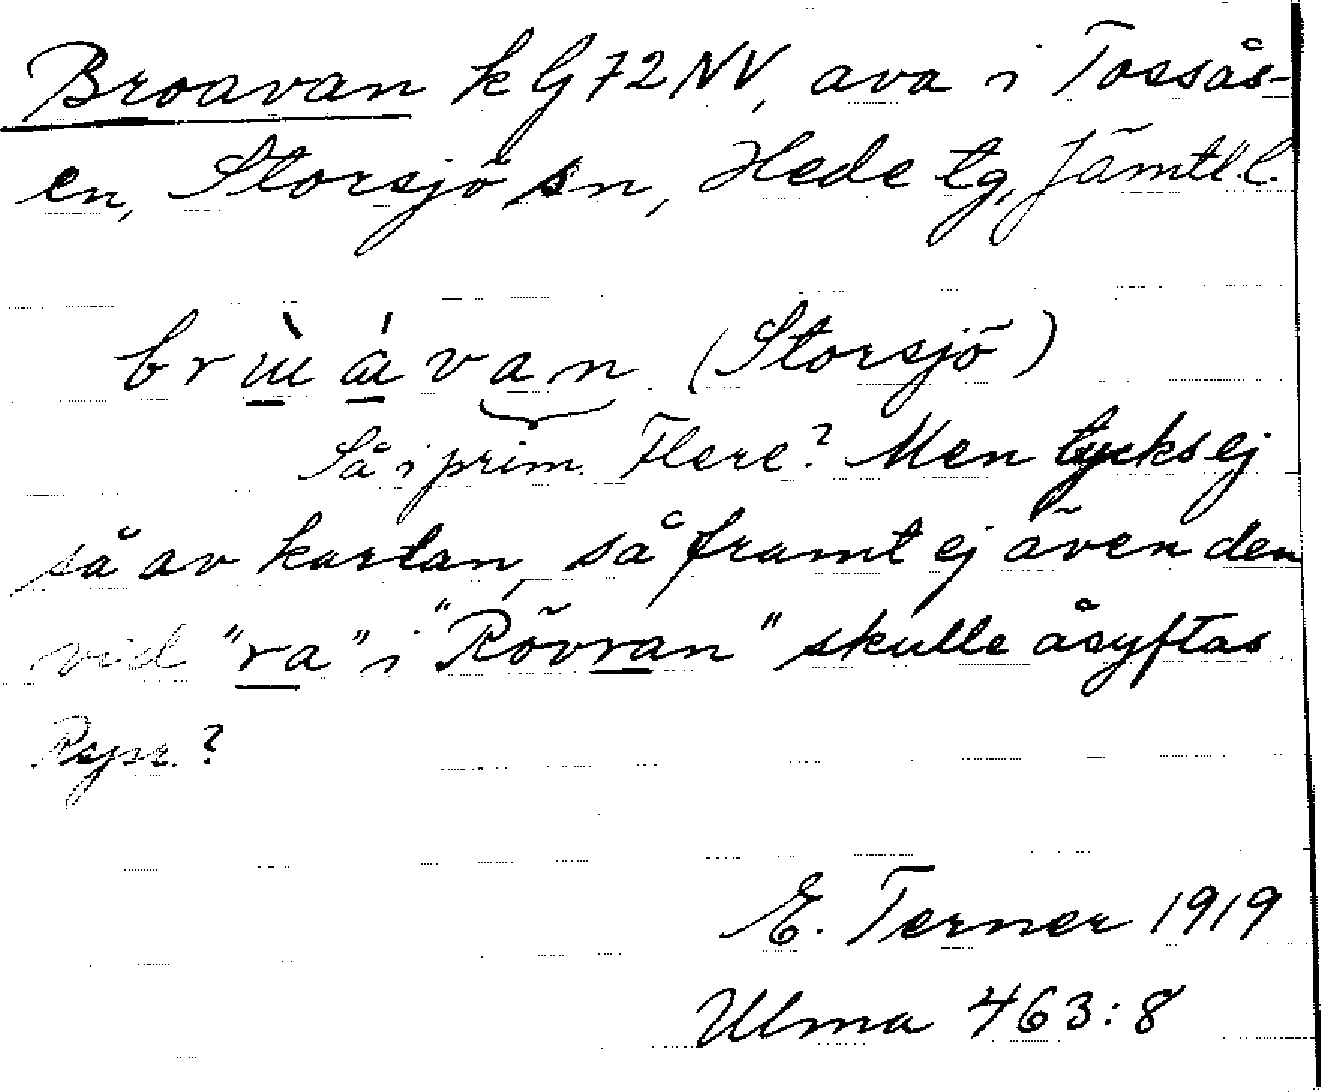 Broavan k G 72 NV, ava i Tossås-
en, Storsjö sn, Hede tg, Jämtl l.
van (Storsjö)
Så i prim. Flere? Men tycks ej
så av kartan, så framt ej även den
vid "ra" i "Rövran" skulle åsyftas
Repr.?
E. Terner 1919
Ulma 463:8